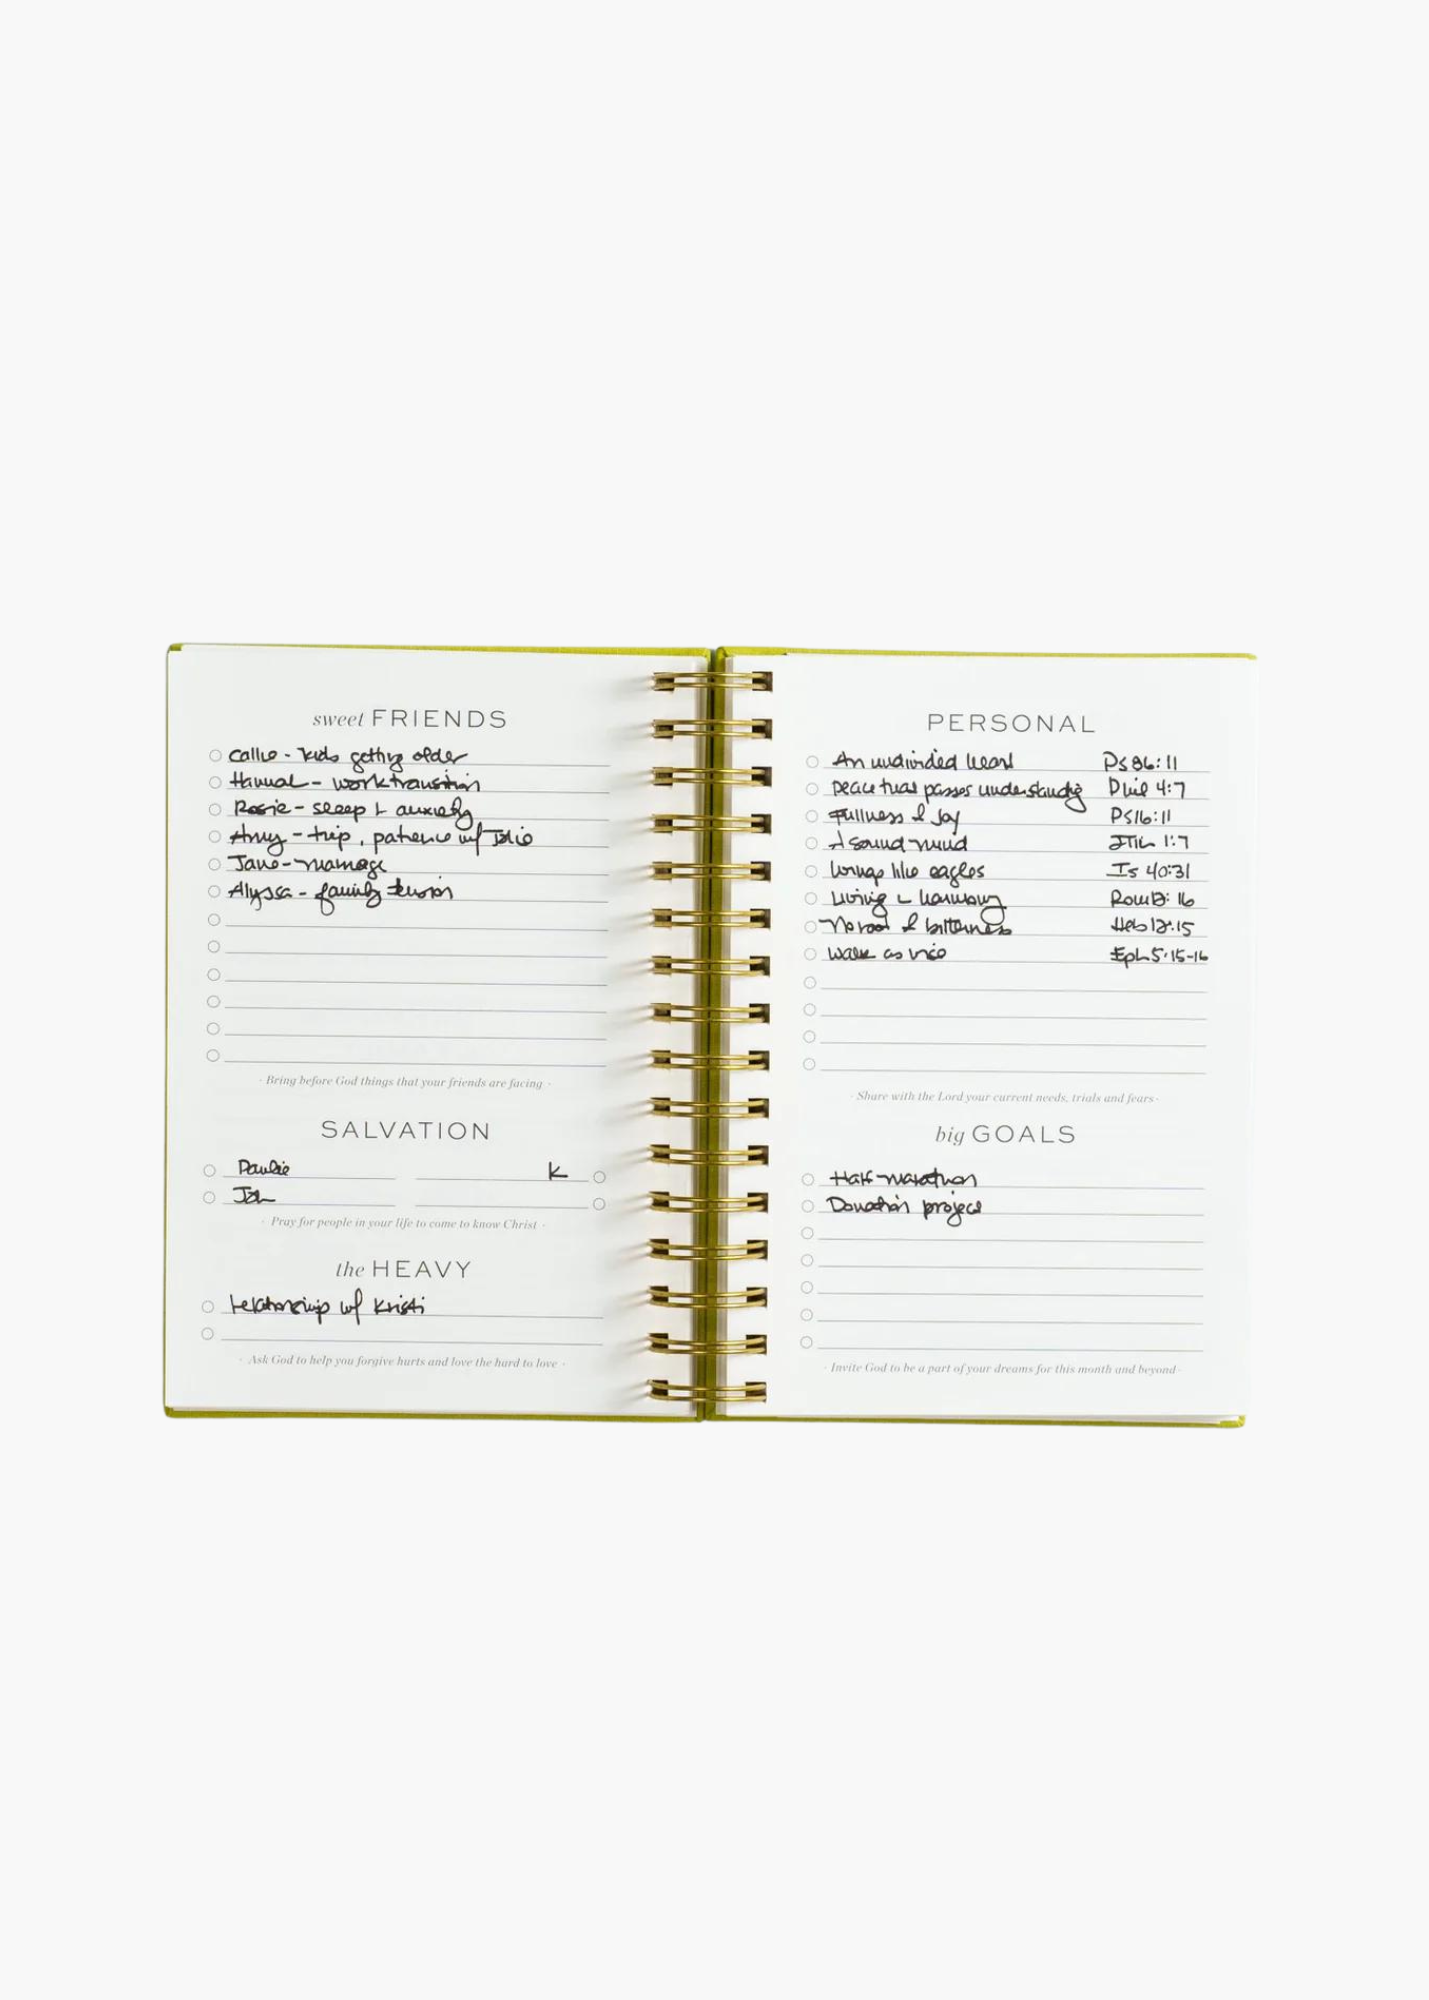 sweet FRIENDS
Callie - kids getting older
Hannah - work transition
Rosie - sleep + anxiety
Amy - trip, patience w/
Jane - marriage
Alyssa - family tension
· Bring before God things that your friends are facing ·
SALVATION
Paulie K
· Pray for people in your life to come to know Christ ·
the HEAVY
relationship w/ Kristi
· Ask God to help you forgive hurts and love the hard to love ·
PERSONAL
An undivided heart Ps 86:11
peace that passes understanding Phil 4:7
Fullness of Joy Ps 16:11
A sound mind 2Tim 1:7
Wings like eagles Is 40:31
Living in harmony Rom 12:16
No root of bitterness Heb 12:15
Walk as wise Eph 5:15-16
· Share with the Lord your current needs, trials and fears ·
big GOALS
Half-marathon
Donation project
· Invite God to be a part of your dreams for this month and beyond ·